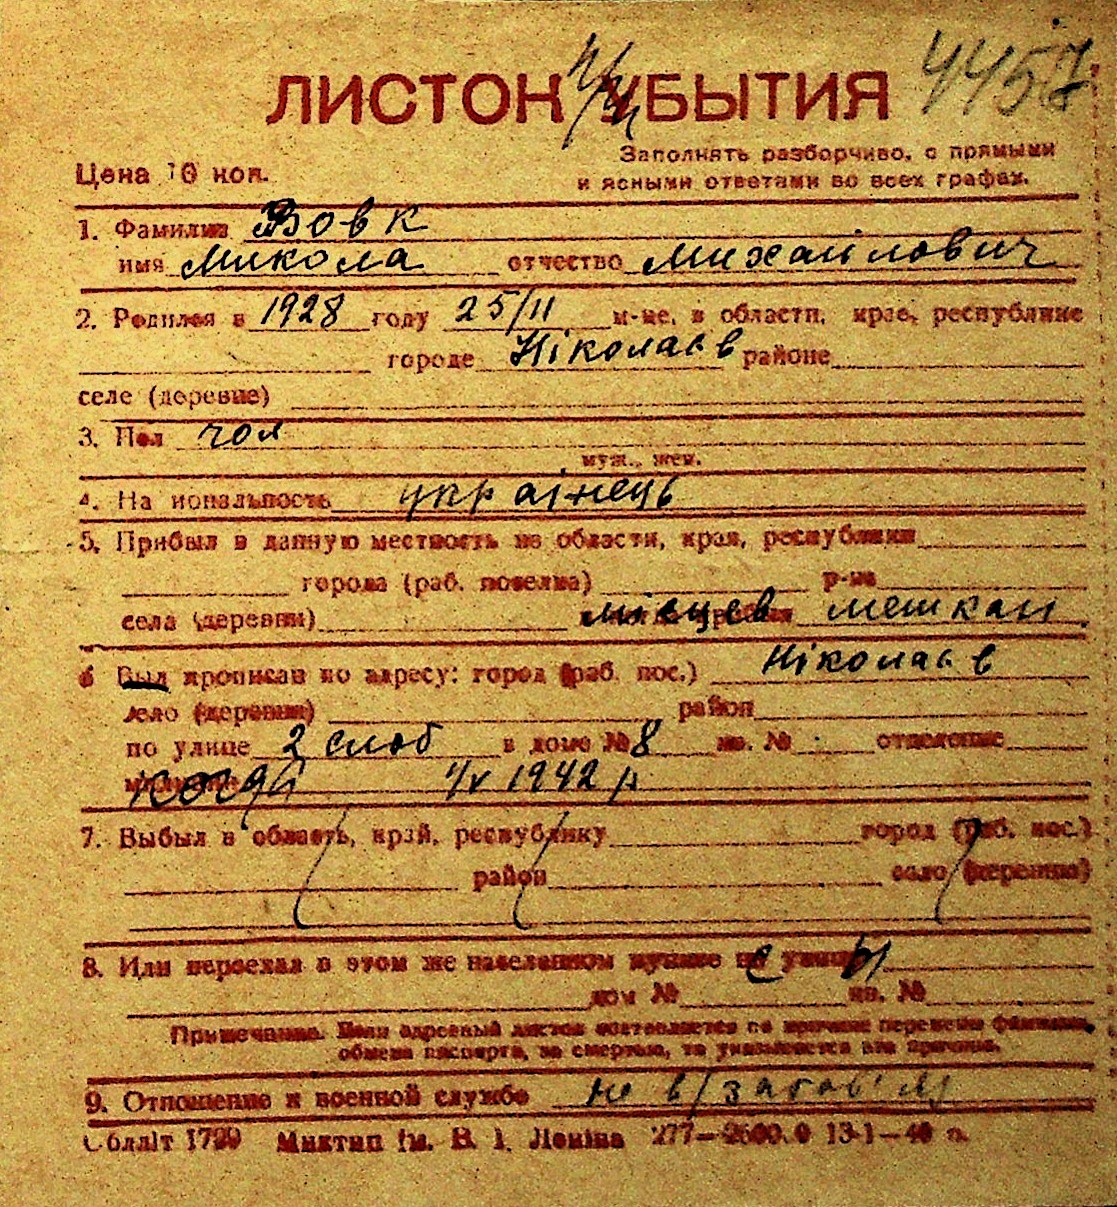 4457
ЛИСТОК УБЫТИЯ
Цена 10 коп.
Заполнять разборчиво, с прямыми
и ясными ответами во всех графах.
1. Фамилия Вовк
имя Микола отчество Михайлович
2. Родился в 1928 году 25/II м-це, в области, крае, республике
городе Ніколаєв районе
селе (деревне)
3. Пол чол
муж., жен.
4. Национальность українець
5. Прибыл в данную местность из области, края, республики
города (раб. поселка) р-на
села (деревни) місцев мешкан
6 Был прописан по адресу: город (раб. пос.) Ніколаєв
село (деревня) район
по улице 2 слоб в доме № 8 кв. № отделение
милиции когда 1942 р
7. Выбыл в область, край, республику город (раб. пос.)
район село (деревню)
8. Или переехал в этом же населенном пункте по улице
дом № кв. №
Примечание. Если адресный листок составляется по причине перемены фамилии,
обмена паспорта, за смертью, то указывается эта причина.
9. Отношение к военной службе не в/
Облліт 1799 Миктип ім. В. І. Леніна 277—2500.0 13-1—40 р.